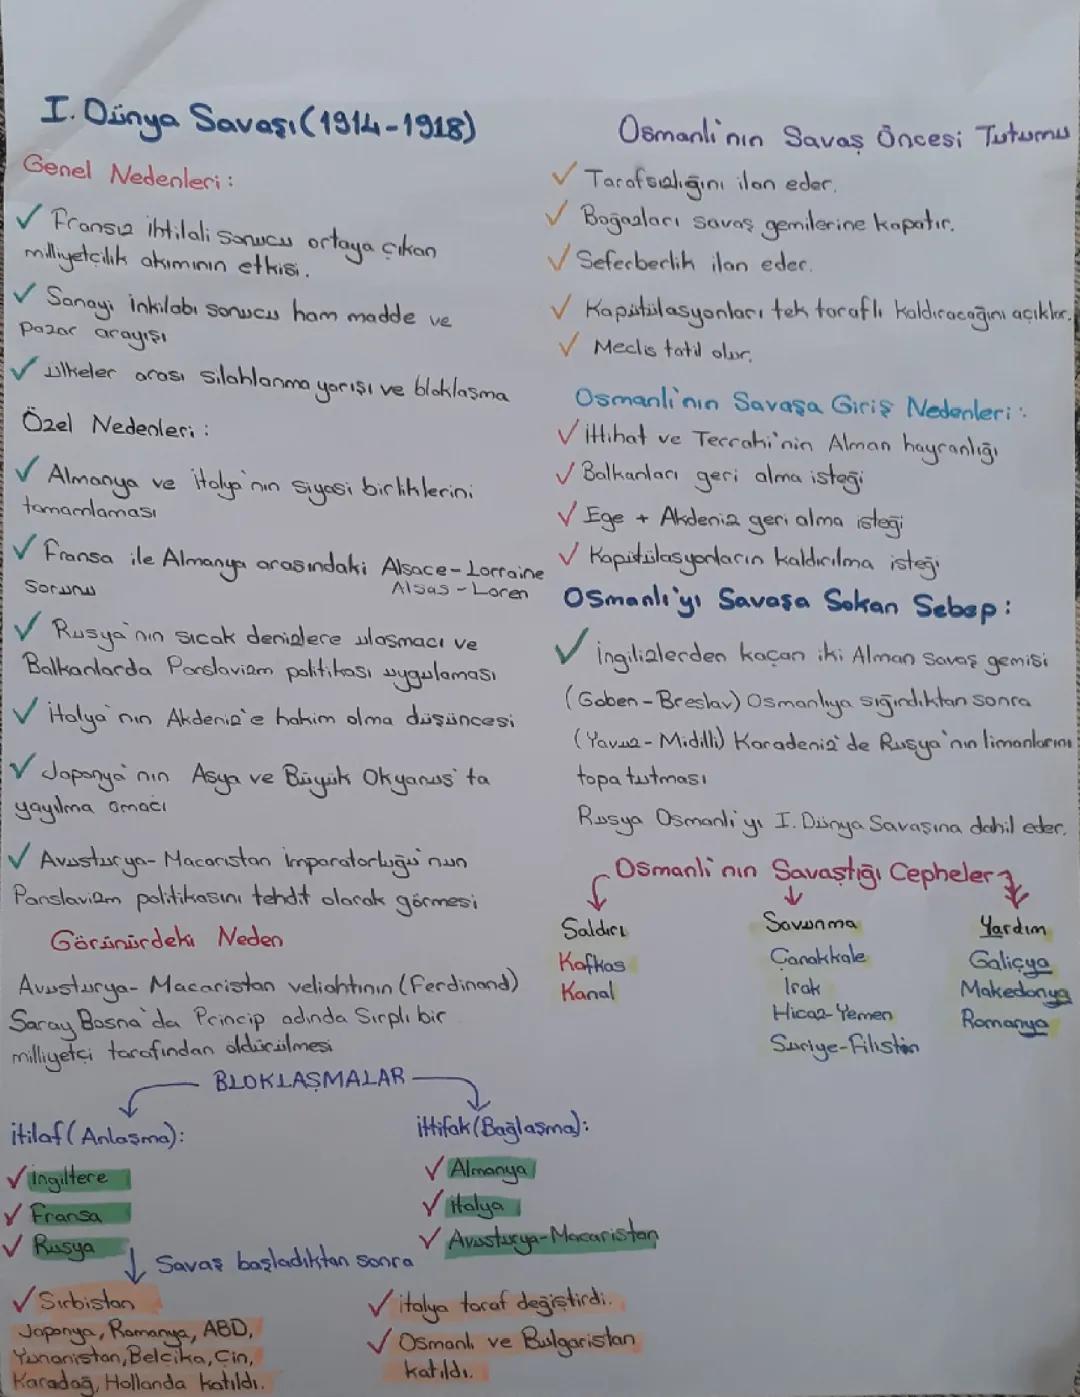 I. Dünya Savaşı(1914-1918)
Genel Nedenleri:
✓ Fransız ihtilali sonucu ortaya çıkan
milliyetçilik akımının etkisi.
✓ Sanayi inkilabı sonucu ham madde ve
pazar arayışı
✓ ülkeler arası silahlanma yarışı ve bloklaşma
Özel Nedenleri:
✓ Almanya ve İtalya'nın siyasi birliklerini
tamamlaması
✓ Fransa ile Almanya arasındaki Alsace-Lorraine
sorunu Alsas-Loren
✓ Rusya'nın sıcak denizlere ulaşmacı ve
Balkanlarda Panslavizm politikası uygulaması
✓ İtalya'nın Akdeniz'e hakim olma düşüncesi
✓ Japonya'nın Asya ve Büyük Okyanus'ta
yayılma amacı
✓ Avusturya-Macaristan imparatorluğu'nun
Panslavizm politikasını tehdit olarak görmesi
Görünürdeki Neden
Avusturya-Macaristan veliahtının (Ferdinand)
Saray Bosna'da Princip adında Sırplı bir
milliyetçi tarafından öldürülmesi
BLOKLAŞMALAR
itilaf (Anlaşma):
✓ ingiltere
✓ Fransa
✓ Rusya
ittifak (Bağlaşma):
✓ Almanya
✓ italya
✓ Avusturya-Macaristan
Savaş başladıktan sonra
✓ Sırbistan
Japonya, Romanya, ABD,
Yunanistan, Belçika, Çin,
Karadağ, Hollanda katıldı.
✓ italya taraf değiştirdi.
✓ Osmanlı ve Bulgaristan
katıldı.
Osmanlı'nın Savaş Öncesi Tutumu
✓ Tarafsızlığını ilan eder.
✓ Boğazları savaş gemilerine kapatır.
✓ Seferberlik ilan eder.
✓ Kapütülasyonları tek taraflı kaldıracağını açıklar.
✓ Meclis tatil olur.
Osmanlı'nın Savaşa Giriş Nedenleri:
✓ ittihat ve Terraki'nin Alman hayranlığı
✓ Balkanları geri alma isteği
✓ Ege + Akdeniz geri alma isteği
✓ Kapütülasyonların kaldırılma isteği
Osmanlı'yı Savaşa Sokan Sebep:
✓ ingilizlerden kaçan iki Alman savaş gemisi
(Goben-Breslav) Osmanlıya sığındıktan sonra
(Yavuz-Midilli) Karadeniz'de Rusya'nın limanlarını
topa tutması
Rusya Osmanlı'yı I. Dünya Savaşına dahil eder.
Osmanlı'nın Savaştığı Cepheler
Saldırı
Kafkas
Kanal
Savunma
Çanakkale
Irak
Hicaz-Yemen
Suriye-Filistin
Yardım
Galiçya
Makedonya
Romanya